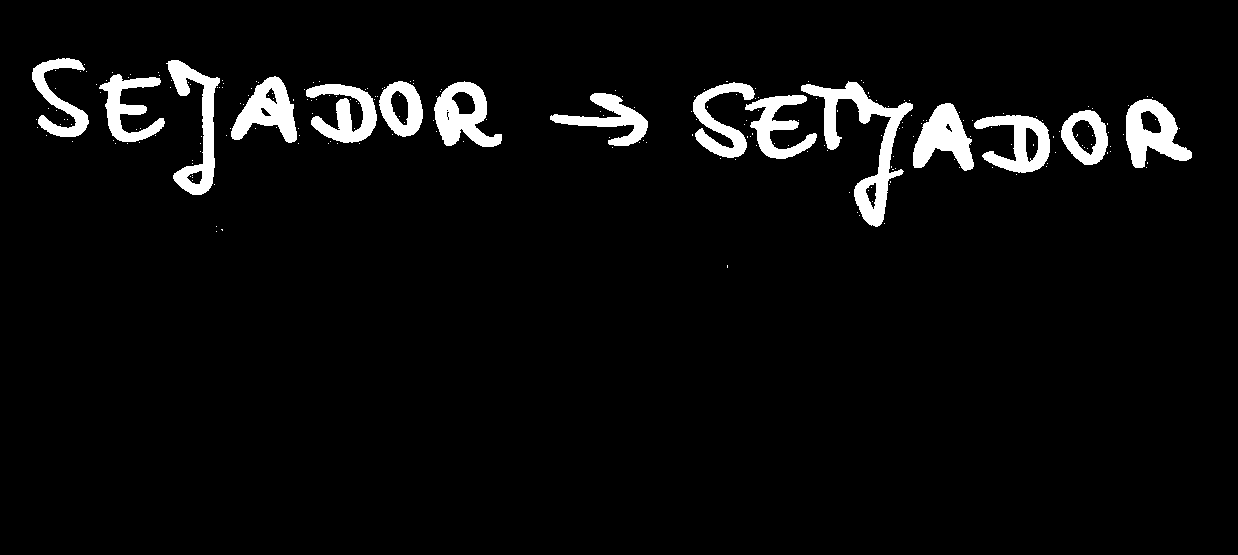 SEJADOR → SETJADOR